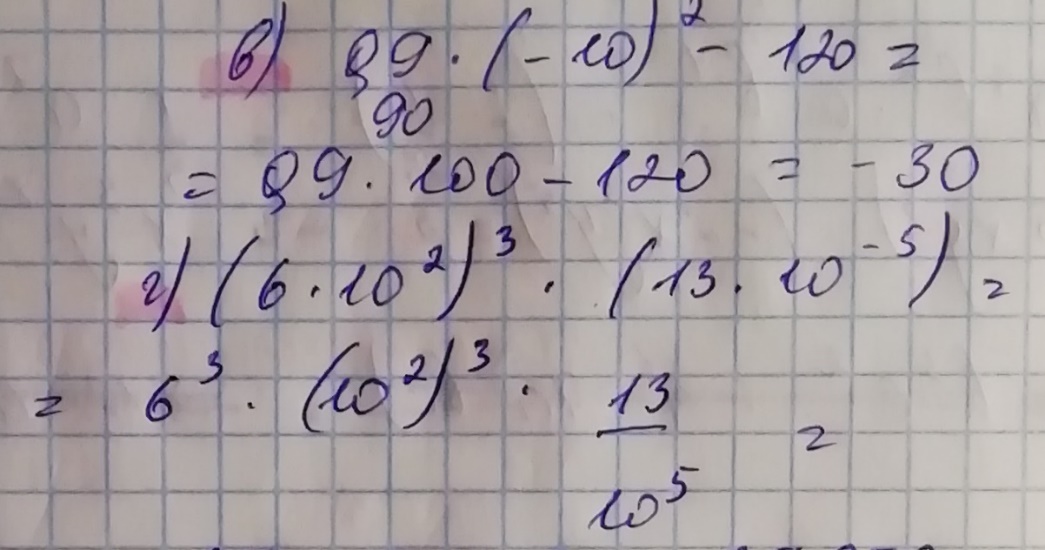 в) 0,9 · (-10)² - 120 =
90
= 0,9 · 100 - 120 = - 30
г) (6 · 10²)³ · (13 · 10⁻⁵) =
= 6³ · (10²)³ · 13/10⁵ =